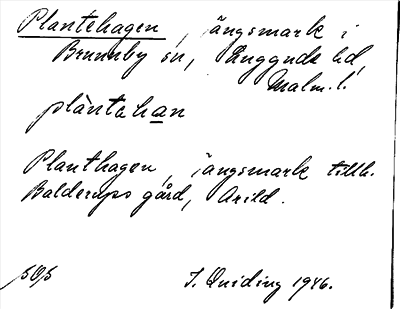 Plantehagen, ängsmark i
Brunnby sn, Luggude hd,
Malm. l.
plàntəhan
Planthagen, ängsmark tillh.
Balderups gård, Arild.
505
I. Quiding 1946.